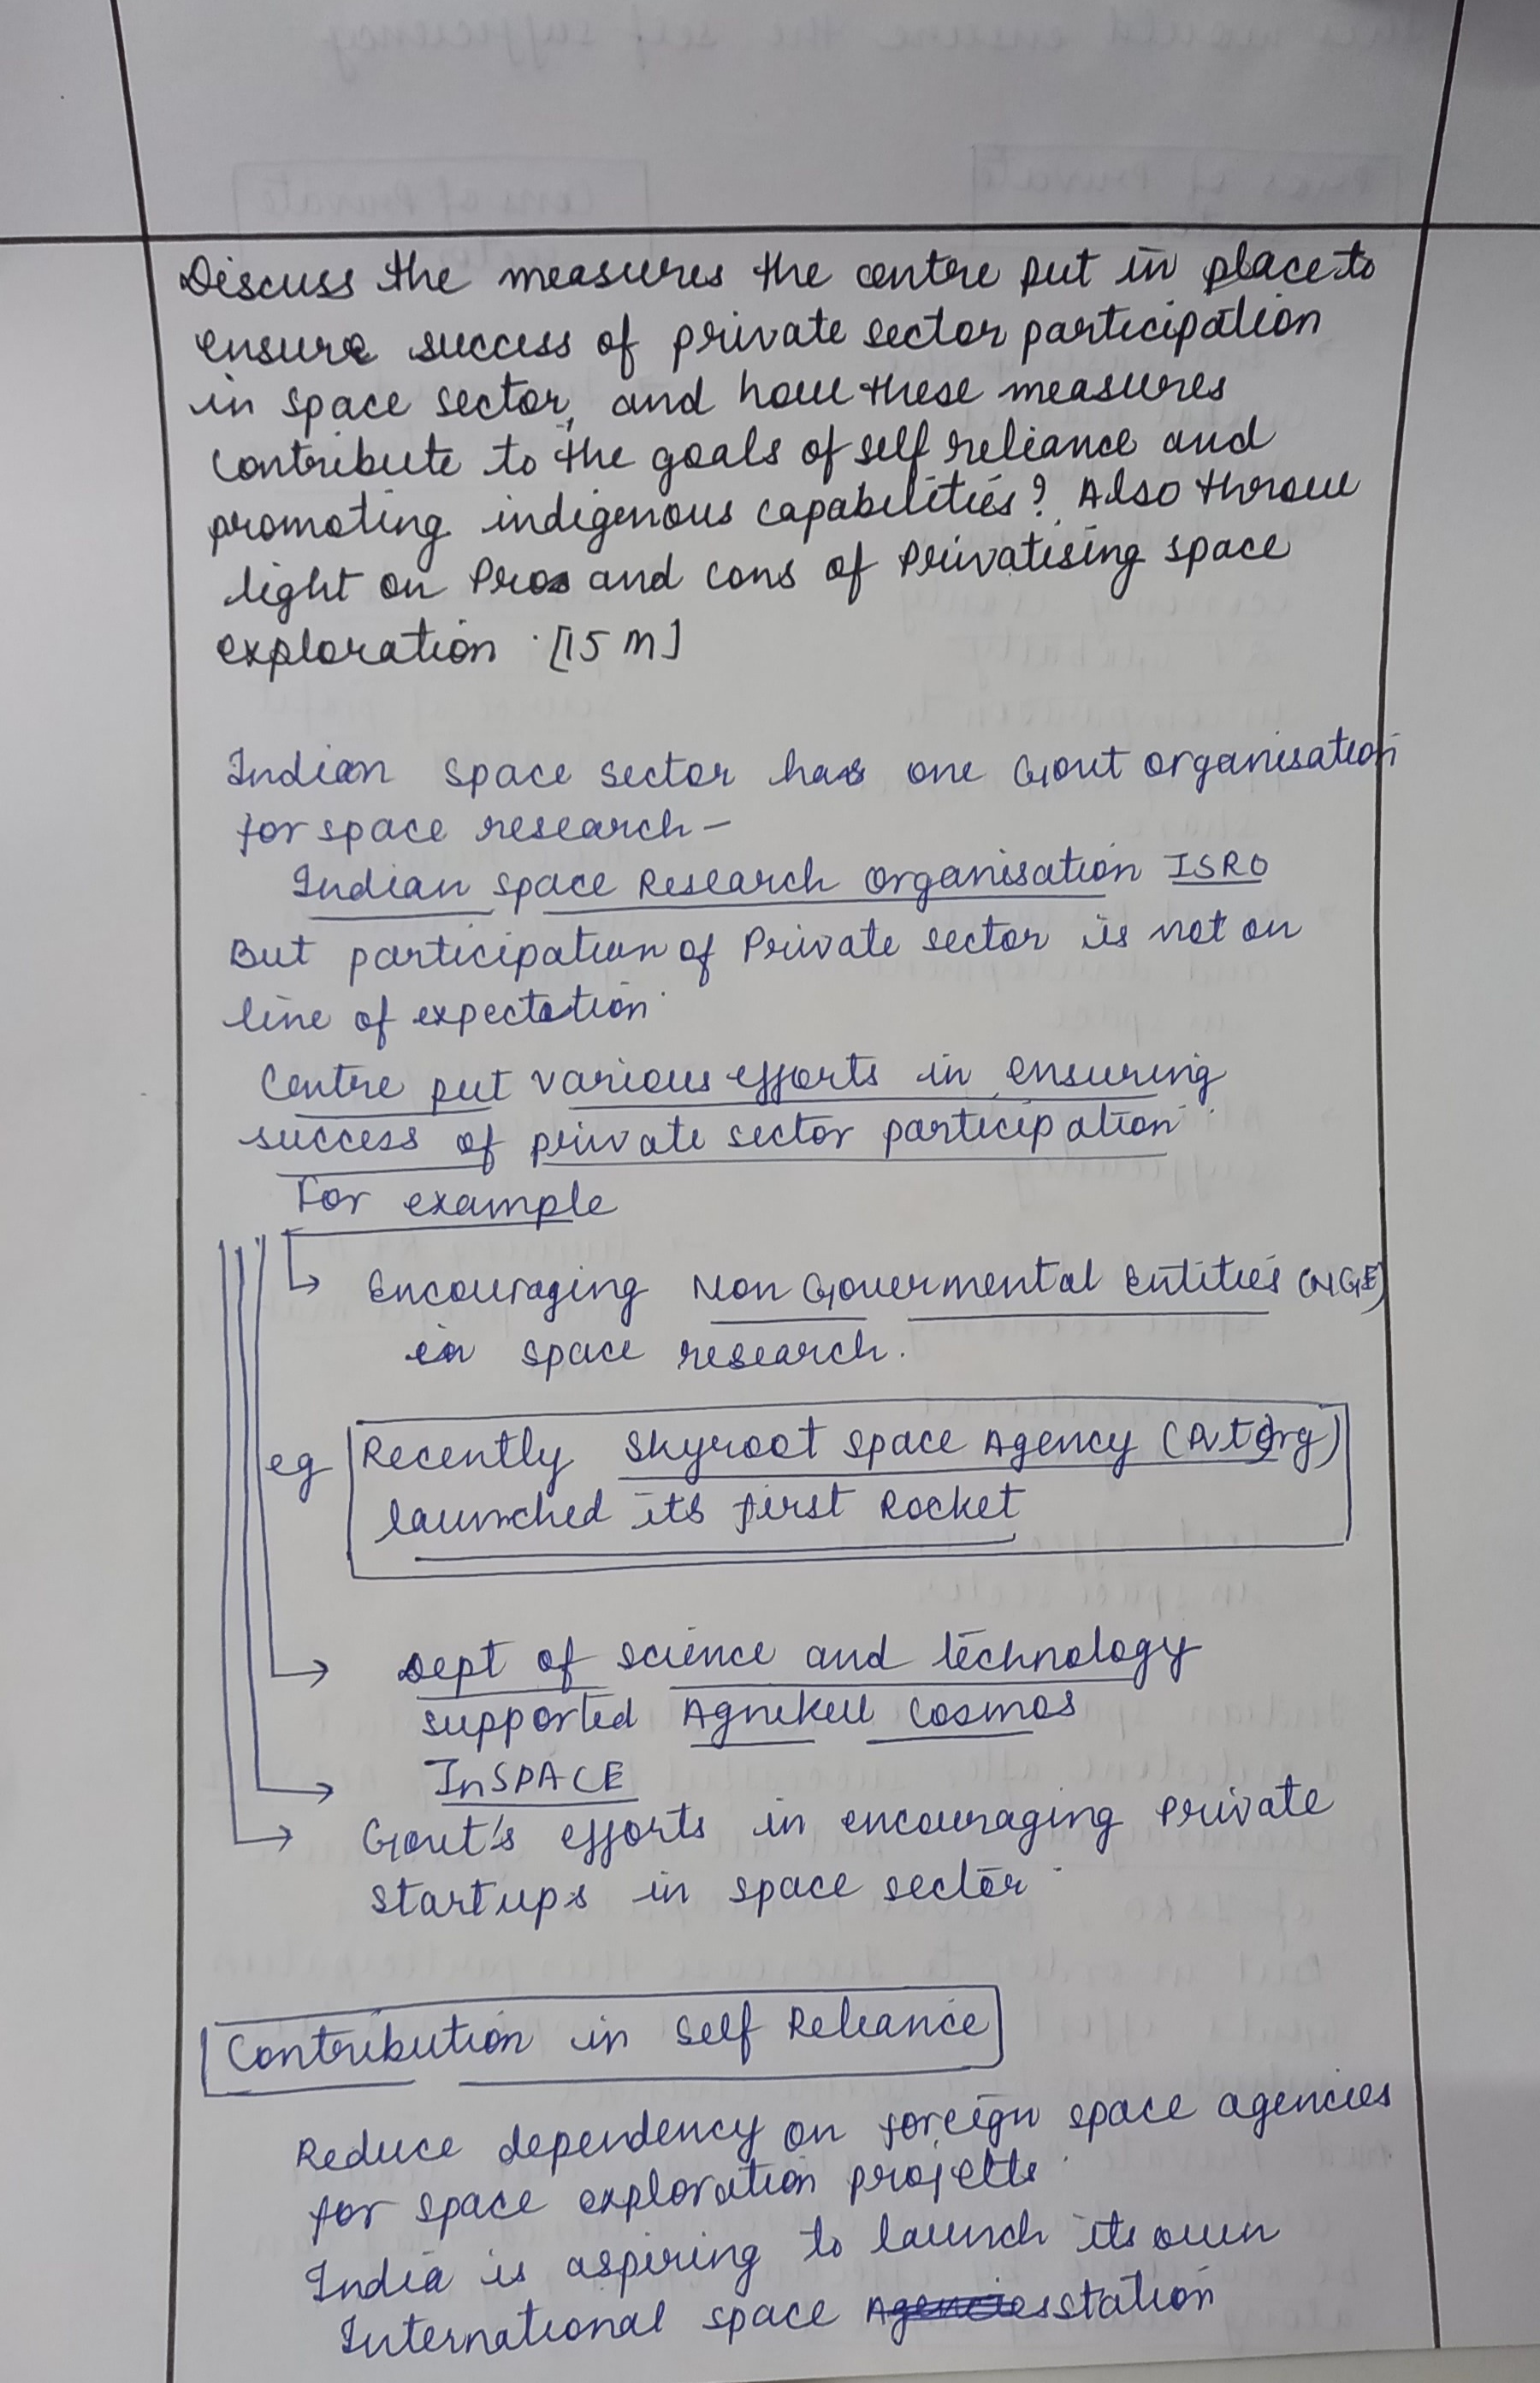 Discuss the measures the centre put in place to
ensure success of private sector participation
in space sector, and how these measures
contribute to the goals of self reliance and
promoting indigenous capabilities? Also throw
light on Pros and cons of Privatising space
exploration. [15 M]
Indian space sector has one Govt organisation
for space research -
Indian Space Research Organisation ISRO
But participation of Private sector is not on
line of expectation.
Centre put various efforts in ensuring
success of private sector participation.
For example
Encouraging Non Govermental Entities (NGE)
in space research.
eg Recently Skyroot Space Agency (Pvt Org)
launched its first Rocket
Dept of science and technology
supported Agnikul Cosmos
InSPACE
Govt's efforts in encouraging private
startups in space sector.
Contribution in Self Reliance
Reduce dependency on foreign space agencies
for space exploration projects.
India is aspiring to launch its own
International space station